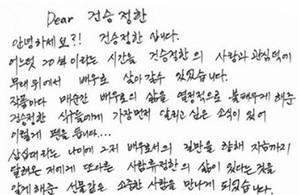 Dear 건승정한
안녕하세요?! 건승정한 입니다.
어느덧 20年이라는 시간을 건승정한의 사랑과 관심덕에
무대위에서 배우로 살아갈수 있었습니다.
작품마다 매순간 배우로의 삶을 열정적으로 불태우게 해준
건승정한 식구들에게 가장먼저 알리고 싶은 소식이 있어
이렇게 펜을 듭니다...
삶의 나이에 그저 배우로서의 질반을 향해 지금까지
달려온 저에게 또다른 사람 정한의 삶이 있다는 것을
알게 해준 선물같은 소중한 사람을 만나게 되었습니다.